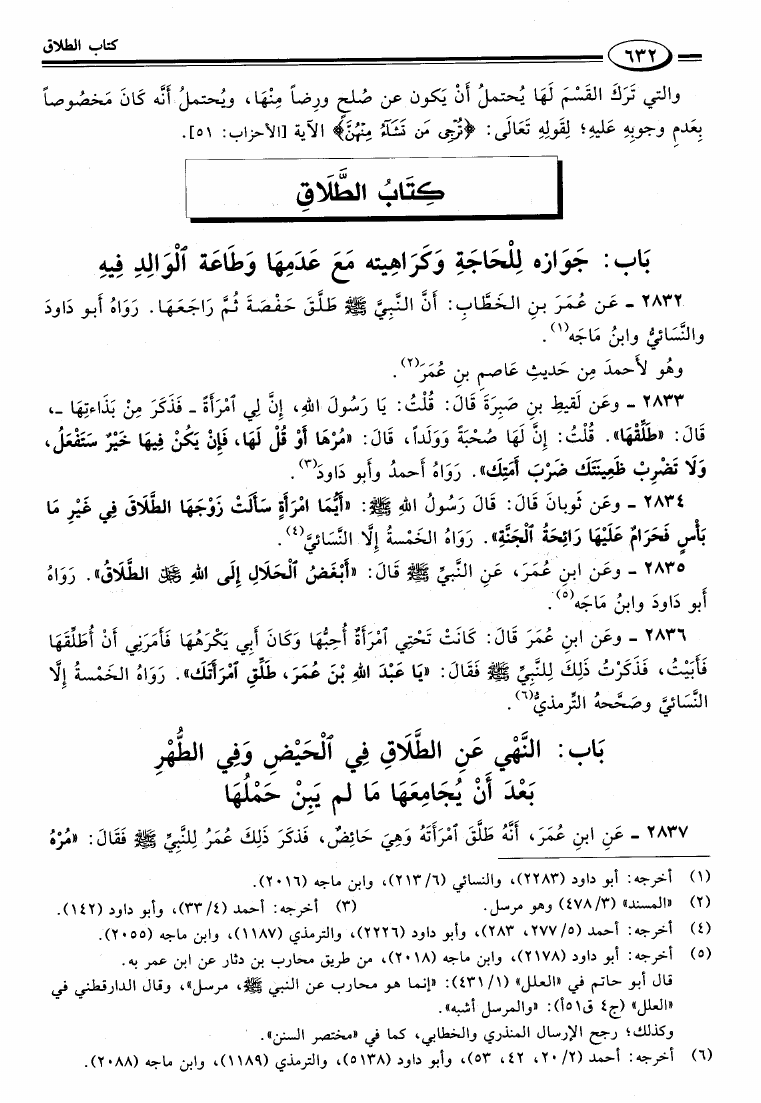 كتاب الطلاق
٦٣٢
والتي تَرَكَ القَسْمَ لَهَا يُحتملُ أَنْ يَكون عن صُلحٍ ورِضاً مِنْهَا، ويُحتملُ أَنَّه كَانَ مَخصُوصاً
بِعَدمِ وجوبِهِ عَليهِ؛ لِقَولِهِ تَعَالَى: ﴿تُرْجِى مَن تَشَآءُ مِنْهُنَّ﴾ الآية [الأحزاب: ٥١].
كِتَابُ الطَّلَاقِ
بَاب: جَوَازه لِلْحَاجَةِ وَكَرَاهِيته مَعَ عَدَمِهَا وَطَاعَة ٱلْوَالِدِ فِيهِ
٢٨٣٢ ـ عَن عُمَرَ بنِ الخَطَّابِ: أَنَّ النَّبِيَّ ﷺ طَلَّقَ حَفْصَةَ ثُمَّ رَاجَعَهَا. رَوَاهُ أبو دَاودَ
والنَّسَائيُّ وابنُ مَاجَه(١).
وهُو لأحمدَ مِن حَديثِ عَاصمِ بنِ عُمَرَ(٢).
٢٨٣٣ ـ وعَن لَقيطِ بنِ صَبِرَةَ قَالَ: قُلْتُ: يَا رَسُولَ اللهِ، إِنَّ لِي ٱمْرَأَةً ـ فَذَكَرَ مِنْ بَذَاءتِهَا ـ،
قَالَ: «طَلِّقْهَا». قُلْتُ: إِنَّ لَهَا صُحْبَةً وَوَلَداً، قَالَ: «مُرْهَا أَوْ قُل لَهَا، فَإِنْ يَكُنْ فِيهَا خَيْرٌ سَتَفْعَلُ،
وَلَا تَضْرِبْ ظَعِينَتَكَ ضَرْبَ أَمَتِكَ». رَوَاهُ أحمدُ وأبو دَاودَ(٣).
٢٨٣٤ ـ وعَن ثَوبانَ قَالَ: قَالَ رَسُولُ اللهِ ﷺ: «أَيُّمَا امْرَأَةٍ سَأَلَتْ زَوْجَهَا الطَّلَاقَ فِي غَيْرِ مَا
بَأْسٍ فَحَرَامٌ عَلَيْهَا رَائِحَةُ ٱلْجَنَّةِ». رَوَاهُ الخَمْسةُ إِلَّا النَّسَائيَّ(٤).
٢٨٣٥ ـ وعَن ابنِ عُمَرَ، عَنِ النَّبيِّ ﷺ قَالَ: «أَبْغَضُ ٱلْحَلَالِ إِلَى اللهِ ﷻ الطَّلَاقُ». رَوَاهُ
أبو دَاودَ وابنُ مَاجَه(٥).
٢٨٣٦ ـ وعَن ابنِ عُمَرَ قَالَ: كَانَتْ تَحْتِي ٱمْرَأَةٌ أُحِبُّهَا وَكَانَ أَبِي يَكْرَهُهَا فَأَمَرَنِي أَنْ أُطَلِّقَهَا
فَأَبَيْتُ، فَذَكَرْتُ ذَلِكَ لِلنَّبِيِّ ﷺ فَقَالَ: «يَا عَبْدَ اللهِ بْنَ عُمَرَ، طَلِّقِ ٱمْرَأَتَكَ». رَوَاهُ الخَمْسةُ إِلَّا
النَّسَائيَّ وصَحَّحهُ التِّرمذيُّ(٦).
بَاب: النَّهْي عَنِ الطَّلَاقِ فِي ٱلْحَيْضِ وَفِي الطُّهْرِ
بَعْدَ أَنْ يُجَامِعَهَا مَا لم يَبِنْ حَمْلُهَا
٢٨٣٧ ـ عَنِ ابنِ عُمَرَ، أَنَّهُ طَلَّقَ ٱمْرَأَتَهُ وَهِيَ حَائِضٌ، فَذكَرَ ذَلِكَ عُمَرُ لِلنَّبِيِّ ﷺ فَقَالَ: «مُرْهُ
(١) أخرجه: أبو داود (٢٢٨٣)، والنسائي (٢١٣/٦)، وابن ماجه (٢٠١٦).
(٢) «المسند» (٤٧٨/٣) وهو مرسل. (٣) أخرجه: أحمد (٣٣/٤)، وأبو داود (١٤٢).
(٤) أخرجه: أحمد (٢٧٧/٥، ٢٨٣)، وأبو داود (٢٢٢٦)، والترمذي (١١٨٧)، وابن ماجه (٢٠٥٥).
(٥) أخرجه: أبو داود (٢١٧٨)، وابن ماجه (٢٠١٨)، من طريق محارب بن دثار عن ابن عمر به.
قال أبو حاتم في «العلل» (٤٣١/١): «إنما هو محارب عن النبي ﷺ، مرسل»، وقال الدارقطني في
«العلل» (ج٤ ق٥١أ): «والمرسل أشبه».
وكذلك؛ رجح الإرسال المنذري والخطابي، كما في «مختصر السنن».
(٦) أخرجه: أحمد (٢٠/٢، ٤٢، ٥٣)، وأبو داود (٥١٣٨)، والترمذي (١١٨٩)، وابن ماجه (٢٠٨٨).